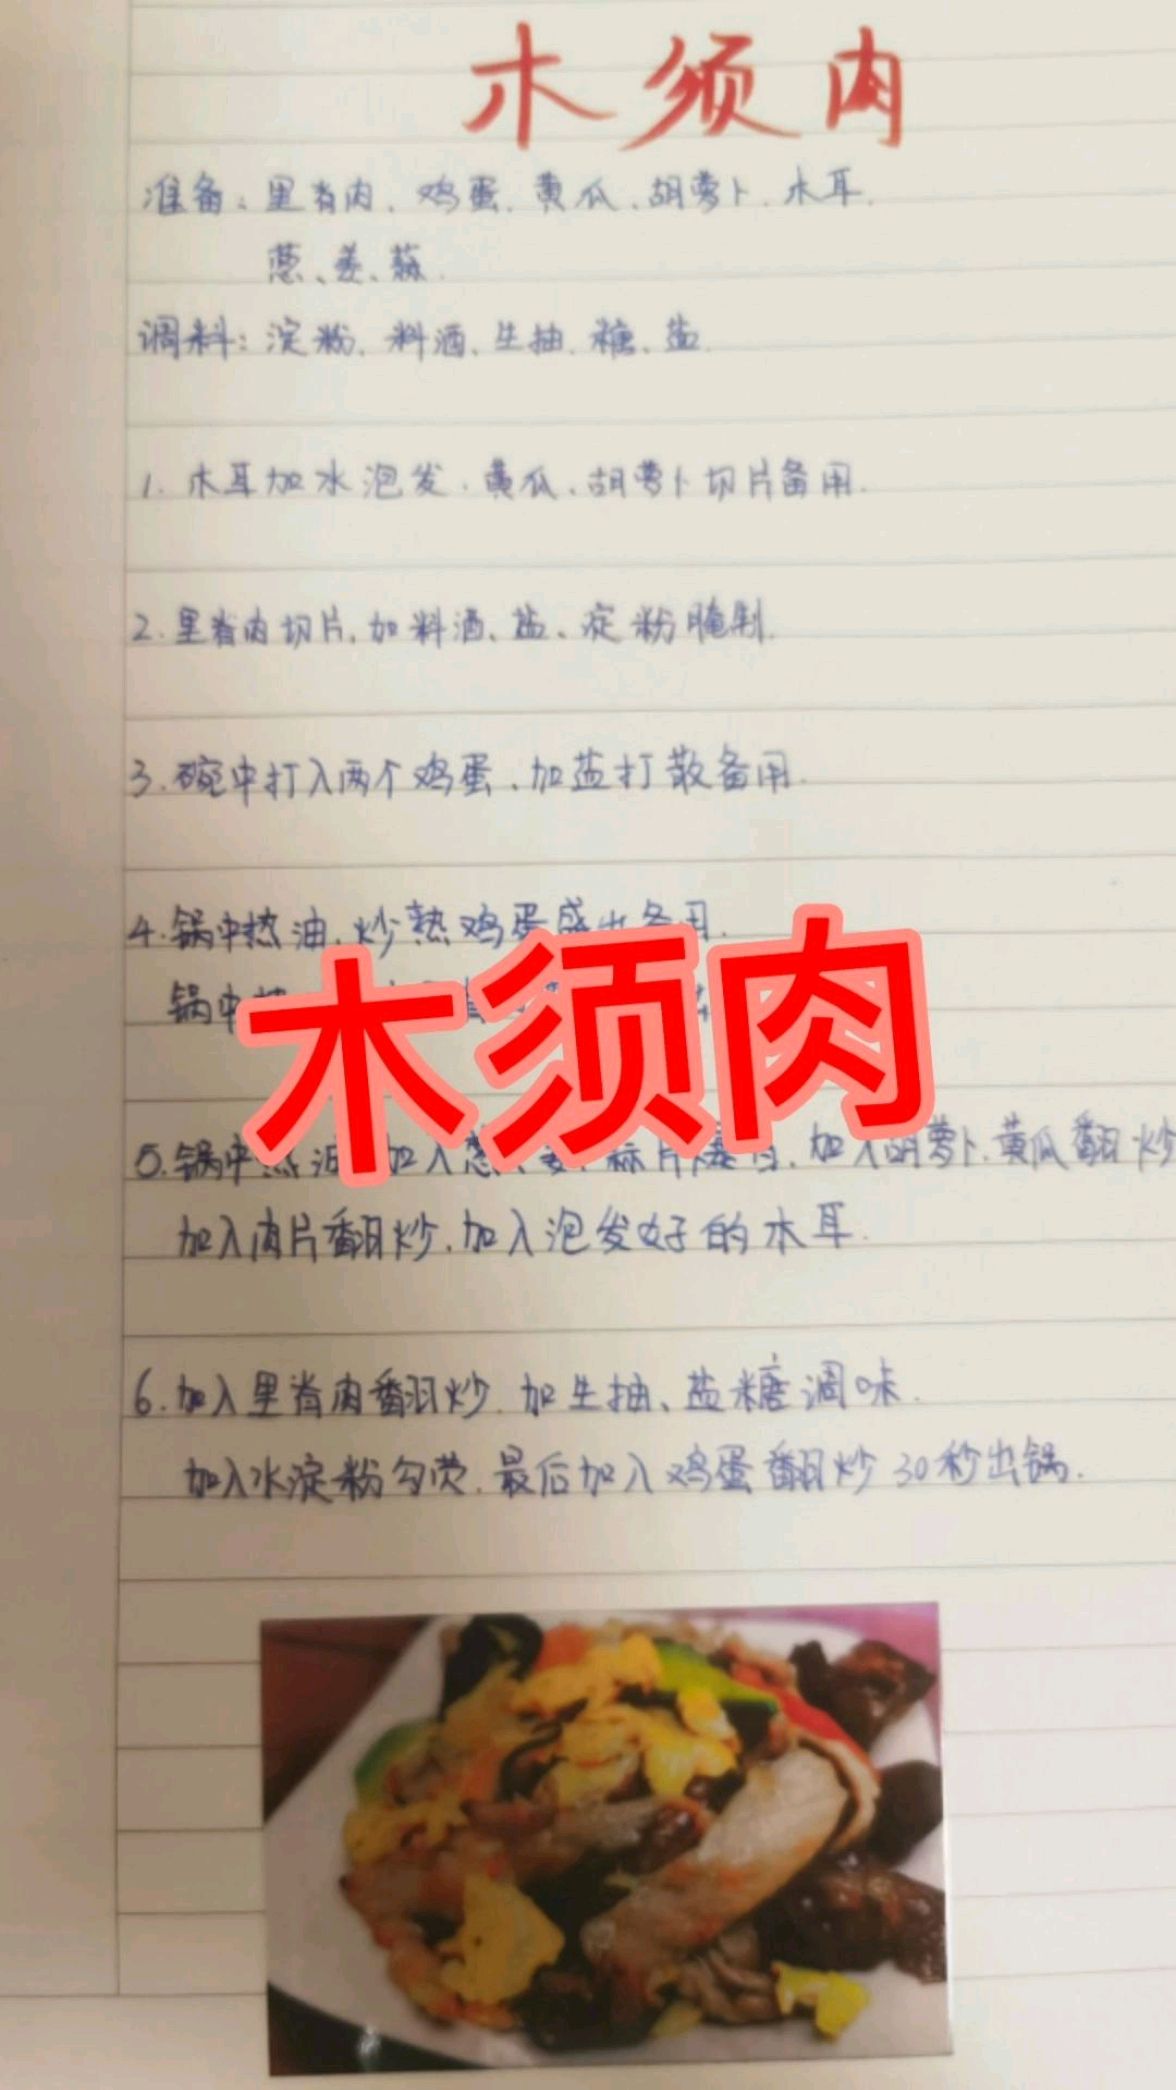 木须肉
准备：里脊肉、鸡蛋、黄瓜、胡萝卜、木耳.
葱、姜、蒜.
调料：淀粉、料酒、生抽、糖、盐.
1. 木耳加水泡发.黄瓜、胡萝卜切片备用.
2. 里脊肉切片,加料酒、盐、淀粉腌制.
3. 碗中打入两个鸡蛋,加盐打散备用.
4. 锅中热油,炒熟鸡蛋盛出备用.
锅中
木须肉
5. 锅中热油 加入葱、姜、蒜片爆香,加入胡萝卜.黄瓜翻炒
加入肉片翻炒,加入泡发好的木耳.
6. 加入里脊肉翻炒.加生抽、盐糖调味.
加入水淀粉勾芡.最后加入鸡蛋翻炒30秒出锅.